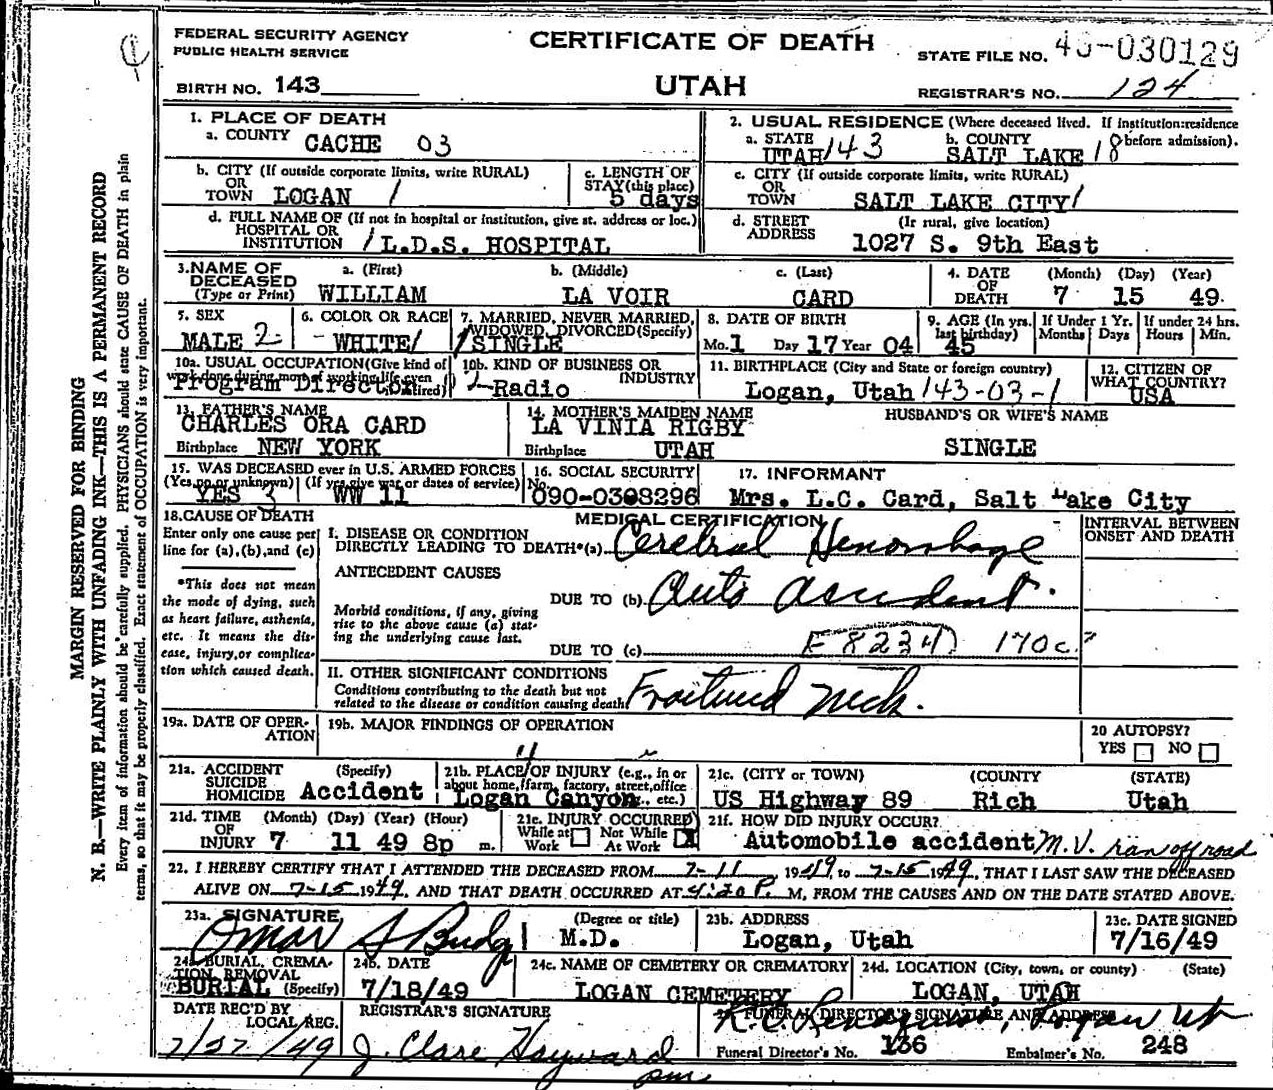 FEDERAL SECURITY AGENCY
PUBLIC HEALTH SERVICE
CERTIFICATE OF DEATH
STATE FILE NO. 49-030129
BIRTH NO. 143
UTAH
REGISTRAR'S NO. 124
MARGIN RESERVED FOR BINDING
N. B.—WRITE PLAINLY WITH UNFADING INK—THIS IS A PERMANENT RECORD
Every item of information should be carefully supplied. PHYSICIANS should state CAUSE OF DEATH in plain
terms, so that it may be properly classified. Exact statement of OCCUPATION is very important.
1. PLACE OF DEATH
a. COUNTY CACHE 03
2. USUAL RESIDENCE (Where deceased lived. If institution:residence before admission).
a. STATE UTAH 143 b. COUNTY SALT LAKE 18
b. CITY (If outside corporate limits, write RURAL)
OR TOWN LOGAN 1
c. LENGTH OF STAY (this place) 5 days
c. CITY (If outside corporate limits, write RURAL)
OR TOWN SALT LAKE CITY 1
d. FULL NAME OF (If not in hospital or institution, give st. address or loc.)
HOSPITAL OR INSTITUTION 1 L.D.S. HOSPITAL
d. STREET ADDRESS (If rural, give location)
1027 S. 9th East
3. NAME OF DECEASED (Type or Print)
a. (First) WILLIAM b. (Middle) LA VOIR c. (Last) CARD
4. DATE OF DEATH (Month) (Day) (Year)
7 15 49.
5. SEX MALE 2
6. COLOR OR RACE WHITE 1
7. MARRIED, NEVER MARRIED, WIDOWED, DIVORCED (Specify) 1 SINGLE
8. DATE OF BIRTH
Mo. 1 Day 17 Year 04
9. AGE (In yrs. last birthday) 45
If Under 1 Yr. Months Days
If under 24 hrs. Hours Min.
10a. USUAL OCCUPATION (Give kind of work done during most of working life, even if retired) Program Director
10b. KIND OF BUSINESS OR INDUSTRY 2 Radio
11. BIRTHPLACE (City and State or foreign country)
Logan, Utah 143-03-1
12. CITIZEN OF WHAT COUNTRY? USA
13. FATHER'S NAME
CHARLES ORA CARD
Birthplace NEW YORK
14. MOTHER'S MAIDEN NAME
LA VINIA RIGBY
Birthplace UTAH
HUSBAND'S OR WIFE'S NAME
SINGLE
15. WAS DECEASED ever in U.S. ARMED FORCES
(Yes, no or unknown) (If yes, give war or dates of service)
YES 3 WW 11
16. SOCIAL SECURITY No. 090-0308296
17. INFORMANT
Mrs. L.C. Card, Salt Lake City
18. CAUSE OF DEATH
Enter only one cause per line for (a), (b), and (c)
*This does not mean the mode of dying, such as heart failure, asthenia, etc. It means the disease, injury, or complication which caused death.
MEDICAL CERTIFICATION
INTERVAL BETWEEN ONSET AND DEATH
I. DISEASE OR CONDITION
DIRECTLY LEADING TO DEATH*(a) Cerebral Hemorrhage
ANTECEDENT CAUSES
DUE TO (b) Auto Accident.
Morbid conditions, if any, giving rise to the above cause (a) stating the underlying cause last.
DUE TO (c) E 8234 170c
II. OTHER SIGNIFICANT CONDITIONS
Conditions contributing to the death but not related to the disease or condition causing death
Fractured neck.
19a. DATE OF OPERATION
19b. MAJOR FINDINGS OF OPERATION
20 AUTOPSY?
YES NO
21a. ACCIDENT SUICIDE HOMICIDE (Specify) Accident
21b. PLACE OF INJURY (e.g., in or about home, farm, factory, street, office bldg., etc.) Logan Canyon
21c. (CITY or TOWN) (COUNTY) (STATE)
US Highway 89 Rich Utah
21d. TIME OF INJURY (Month) (Day) (Year) (Hour)
7 11 49 8p m.
21e. INJURY OCCURRED
While at Work Not While At Work X
21f. HOW DID INJURY OCCUR?
Automobile accident M.V. ran off road
22. I HEREBY CERTIFY THAT I ATTENDED THE DECEASED FROM 7-11, 1949, to 7-15 1949, THAT I LAST SAW THE DECEASED
ALIVE ON 7-15 1949, AND THAT DEATH OCCURRED AT 4:20 P. M, FROM THE CAUSES AND ON THE DATE STATED ABOVE.
23a. SIGNATURE (Degree or title)
Omar S Budge M.D.
23b. ADDRESS
Logan, Utah
23c. DATE SIGNED
7/16/49
24a. BURIAL, CREMATION, REMOVAL (Specify) BURIAL
24b. DATE
7/18/49
24c. NAME OF CEMETERY OR CREMATORY
LOGAN CEMETERY
24d. LOCATION (City, town, or county) (State)
LOGAN, UTAH
DATE REC'D BY LOCAL REG.
7/27/49
REGISTRAR'S SIGNATURE
J. Clare Hayward
FUNERAL DIRECTOR'S SIGNATURE AND ADDRESS
Logan Ut
Funeral Director's No. 136 Embalmer's No. 248